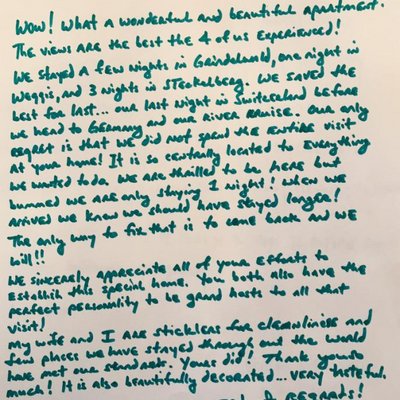 Wow! What a wonderful and beautiful apartment.
The views are the best the 4 of us experienced!
We stayed a few nights in Grindelwald, one night in
Weggis, and 3 nights in Steckelberg. We saved the
best for last... our last night in Switzerland before
we head to Germany and our river cruise. Our only
regret is that we did not spend the entire visit
at your home! It is so centrally located to everything
we wanted to do. We are thrilled to be here but
bummed we are only staying 1 night! When we
arrived we knew we should have stayed longer!
The only way to fix that is to come back and we
will!!
We sincerely appreciate all of your efforts to
establish this special home. You both also have the
perfect personality to be grand hosts to all that
visit!
My wife and I are sticklers for cleanliness and
few places we have stayed through out the world
have met our standards. Yours did! Thank you so
much! It is also beautifully decorated... very tasteful.
Regards!